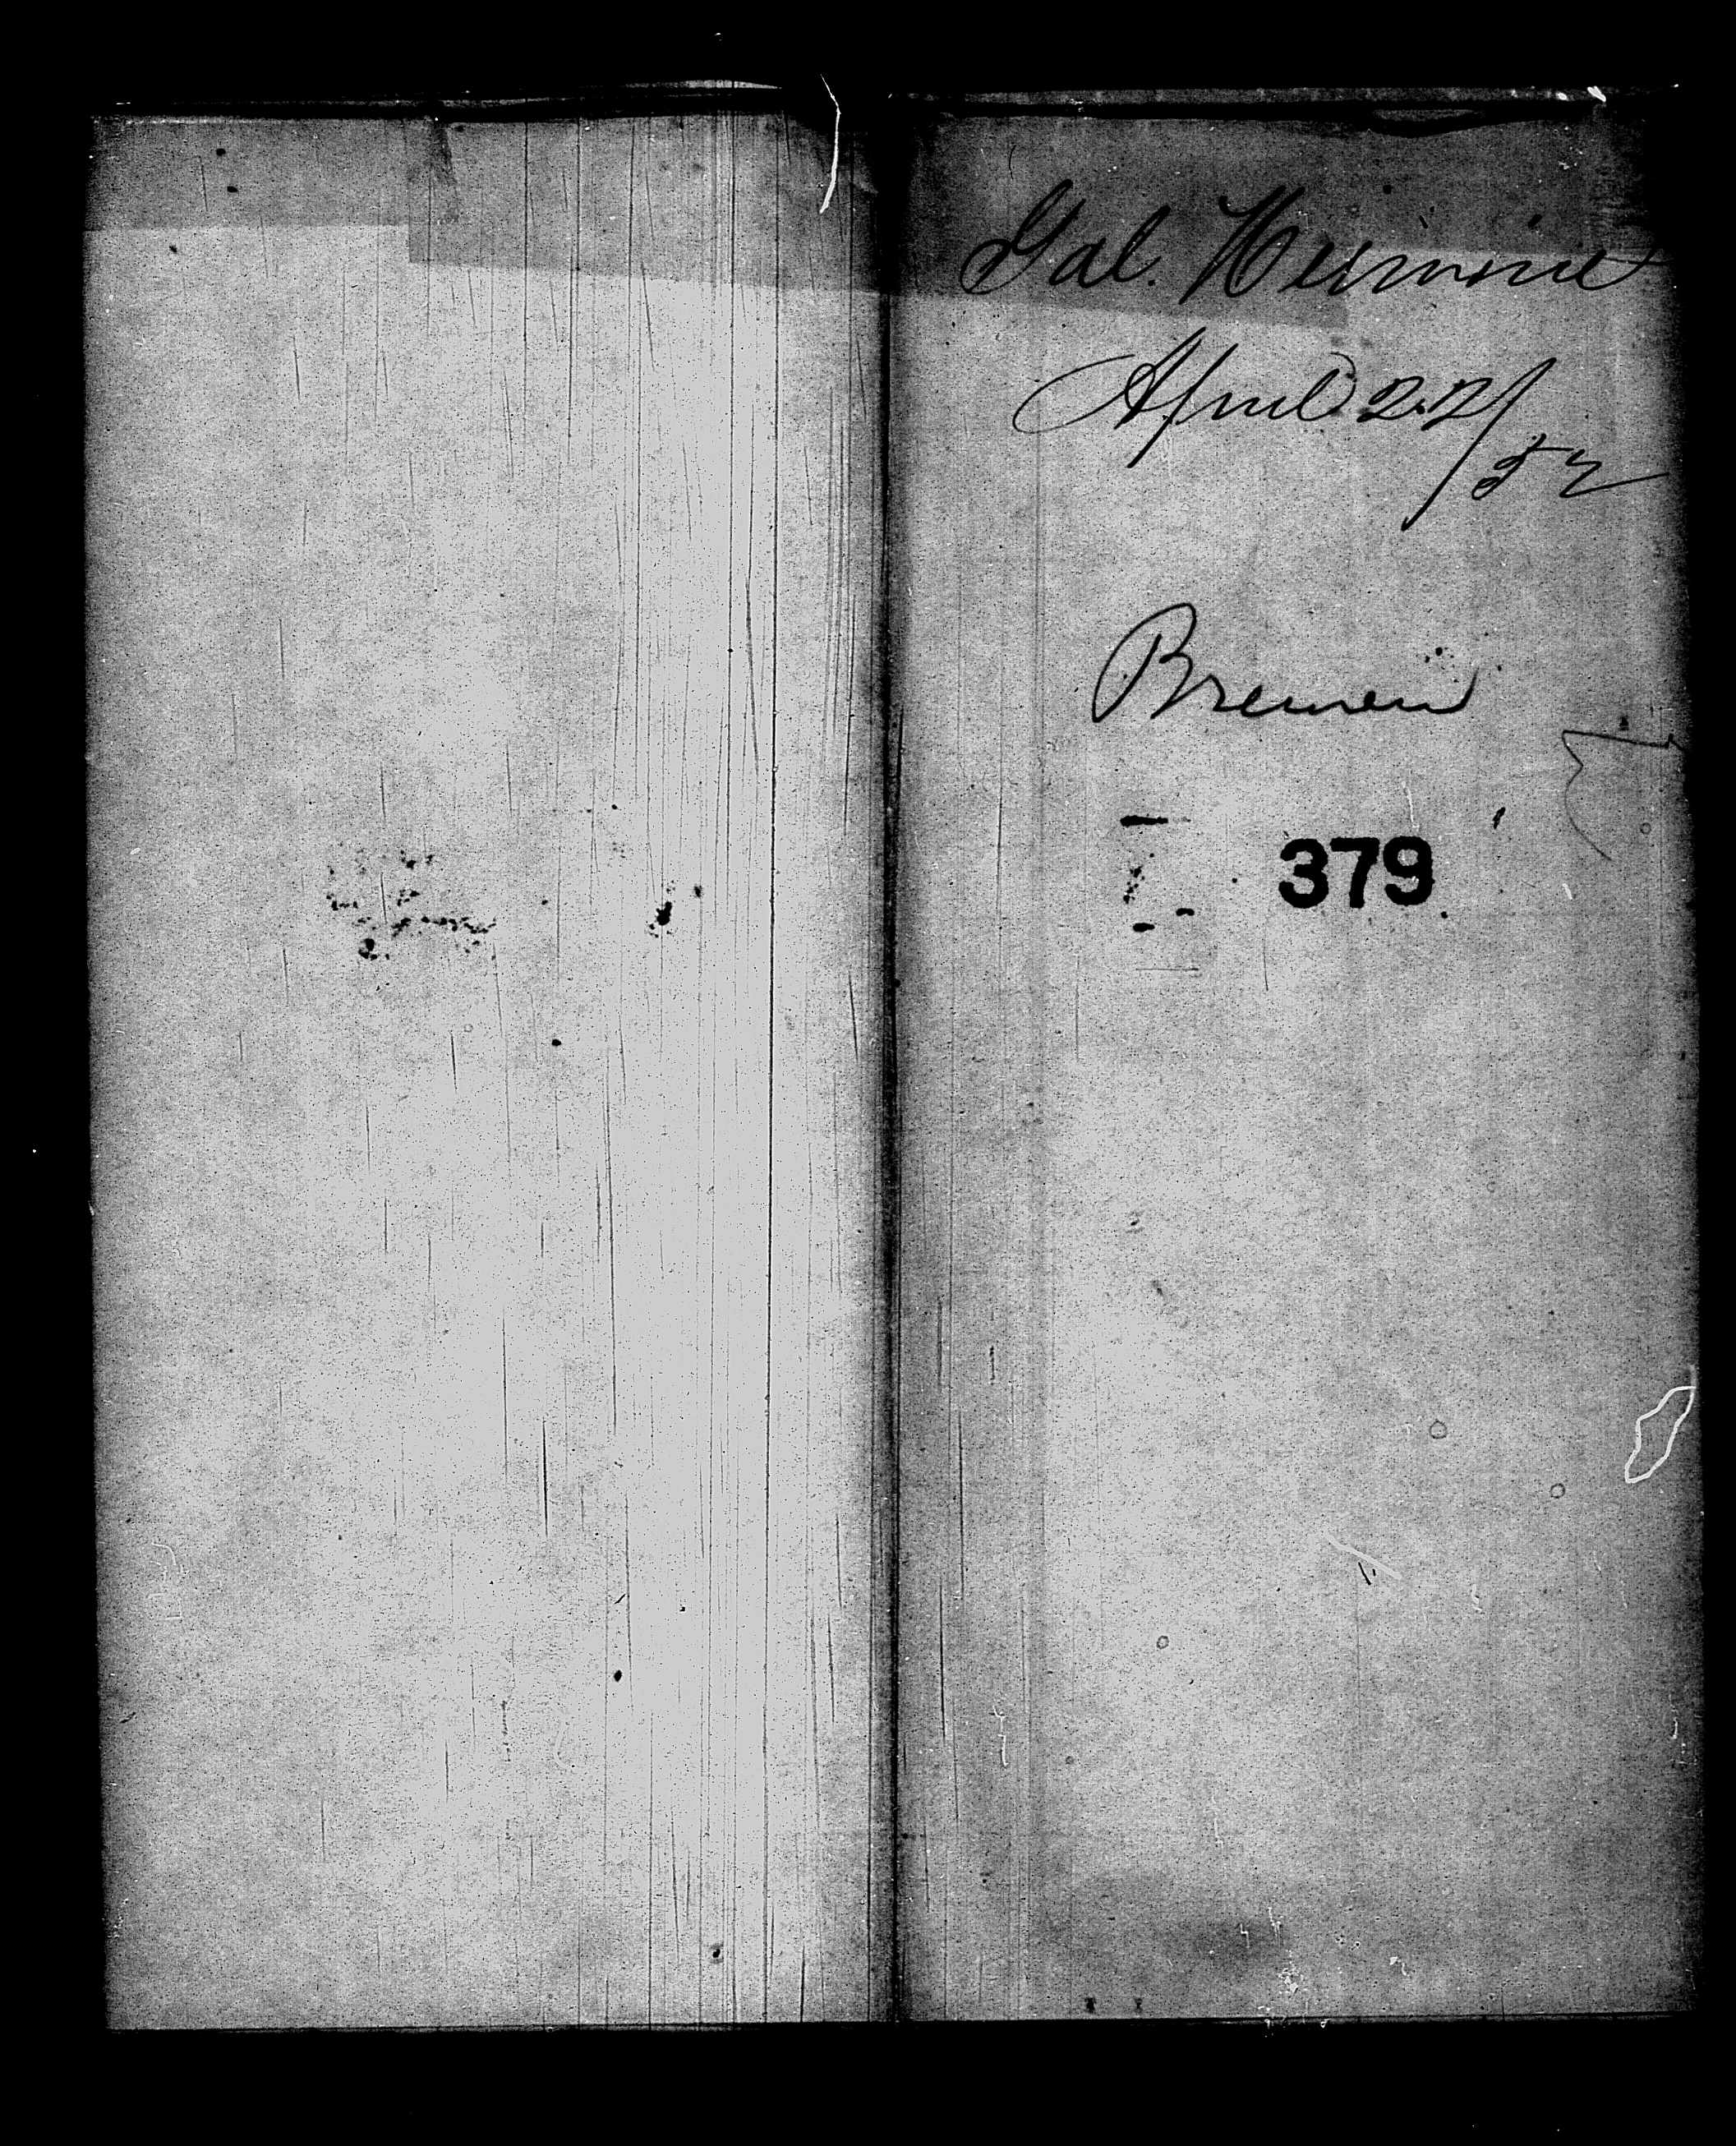 Gal. Hermine
April 22/52
Bremen
379